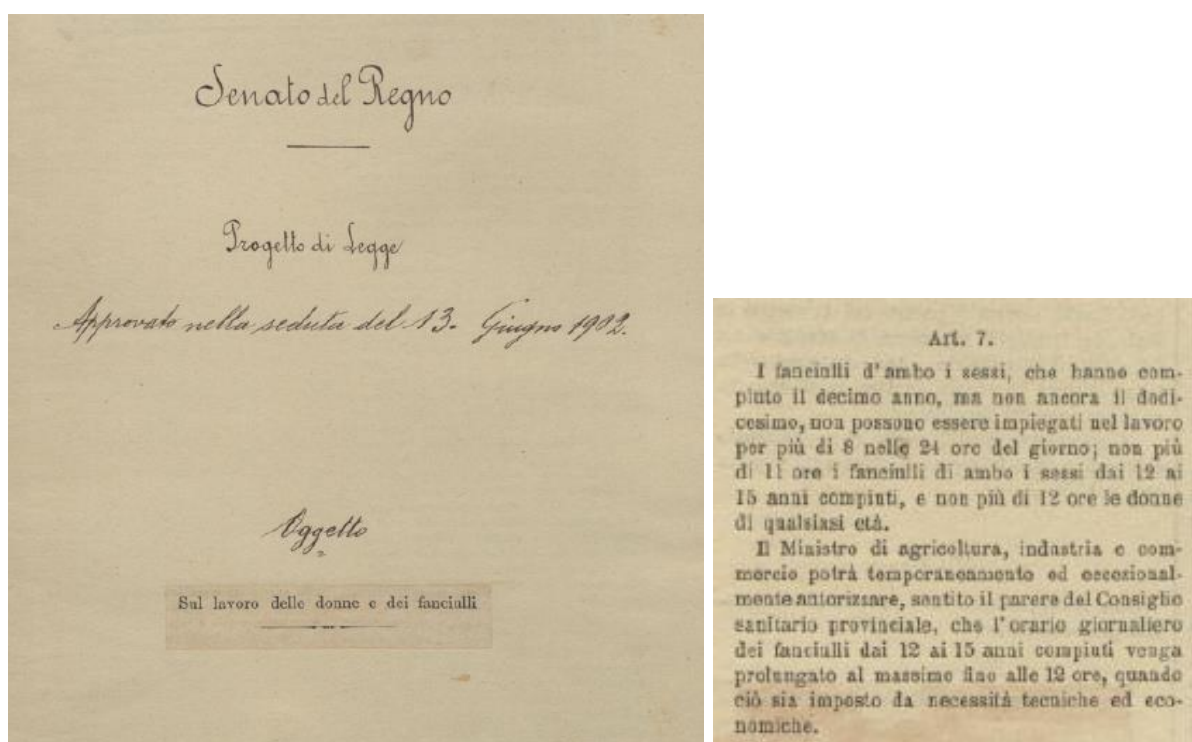 Senato del Regno
Progetto di Legge
Approvato nella seduta del 13. Giugno 1902.
Oggetto
Sul lavoro delle donne e dei fanciulli
Art. 7.
I fanciulli d'ambo i sessi, che hanno com-
piuto il decimo anno, ma non ancora il dodi-
cesimo, non possono essere impiegati nel lavoro
per più di 8 nelle 24 ore del giorno; non più
di 11 ore i fanciulli di ambo i sessi dai 12 ai
15 anni compiuti, e non più di 12 ore le donne
di qualsiasi età.
Il Ministro di agricoltura, industria e com-
mercio potrà temporaneamente ed eccezional-
mente autorizzare, sentito il parere del Consiglio
sanitario provinciale, che l'orario giornaliero
dei fanciulli dai 12 ai 15 anni compiuti venga
prolungato al massimo fino alle 12 ore, quando
ciò sia imposto da necessità tecniche ed eco-
nomiche.